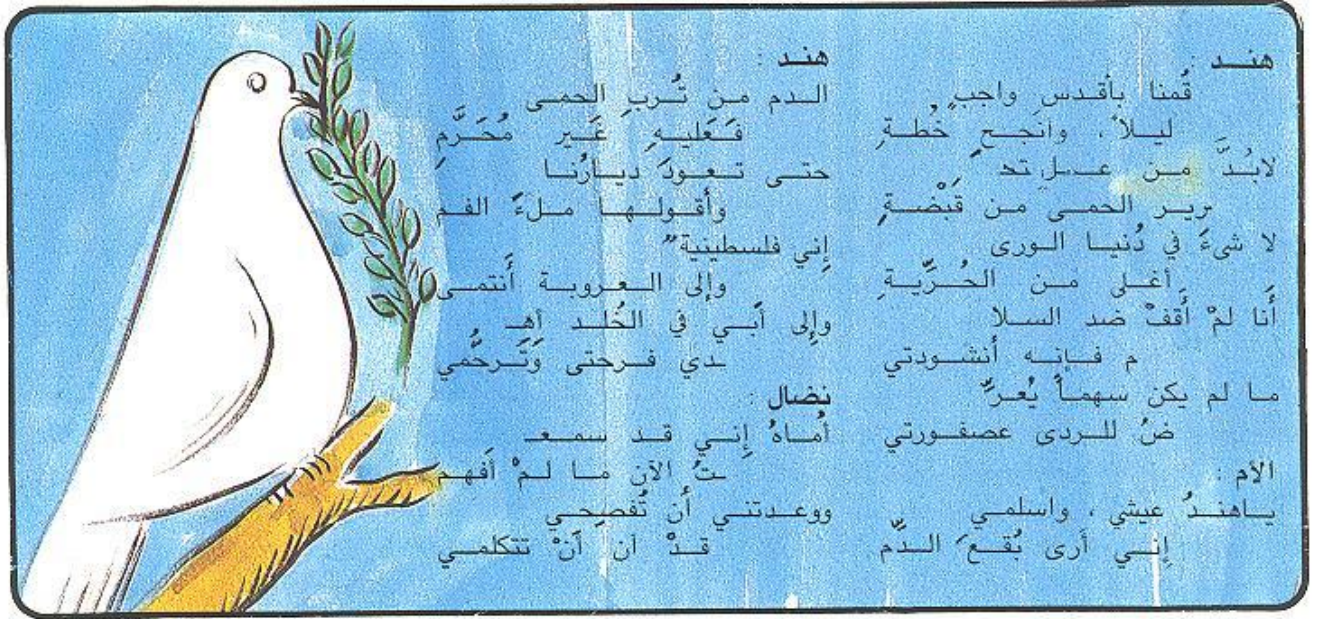 هنـد :
قُمنا بأقـدس واجبٍ
ليـلاً ، وأنجـح خُطـةِ
لابُـدَّ مـن عـمـلٍ تحـ
ـريـر الحمـى مـن قَبْضـةِ
لا شيءَ في دُنيـا الـورى
أغلـى مـن الحُـرِّيـةِ
أَنا لمْ أَقفْ ضد السـلا
م فـإنـه أنشـودتي
مـا لم يكن سهمـاً يُعـرِّ
ضُ للـردى عصفـورتي
الأم :
يـاهنـدُ عيشي ، واسلمـي
إنـي أرى بُقـعَ الـدَّم
هند :
الـدم مـن تُـربِ الحمـى
فَعَليـهِ غَـير مُحَـرَّمِ
حتـى تـعـودَ ديـارُنـا
وأقـولـهـا مـلءَ الفـم
إني فلسطينيةٌ
وإلى الـعـروبـة أَنتمـى
وإلى أَبـي في الخُلـد أهـ
ـدي فـرحتى وَتَـرحُّمي
نضال :
أُمـاهُ إنـي قـد سمـعـ
ـتُ الآن مـا لـمْ أفهـم
ووعـدتنـي أن تُفصِحـي
قـدْ آن أنْ تتكلمـي